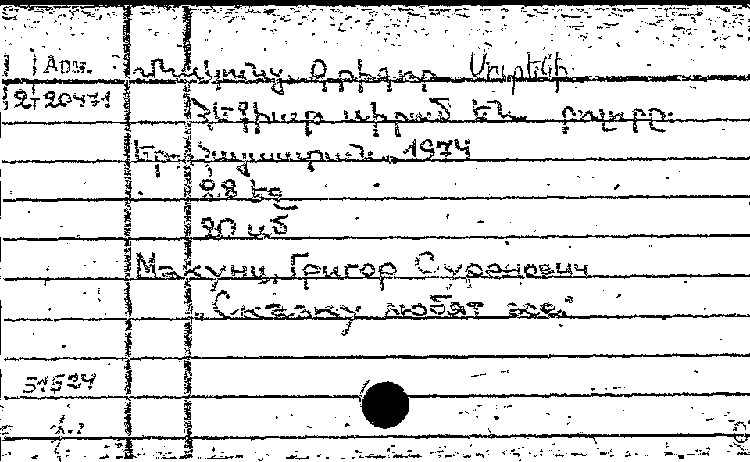 Арм. Մակունց Գրիգոր Սուրենի
2-20471 Հեքիաթ սիրում են բոլորը:
Եր., Հայաստան, 1974
28 էջ
20 սմ
Макунц, Григор Суренович
"Сказку любят все."
51524